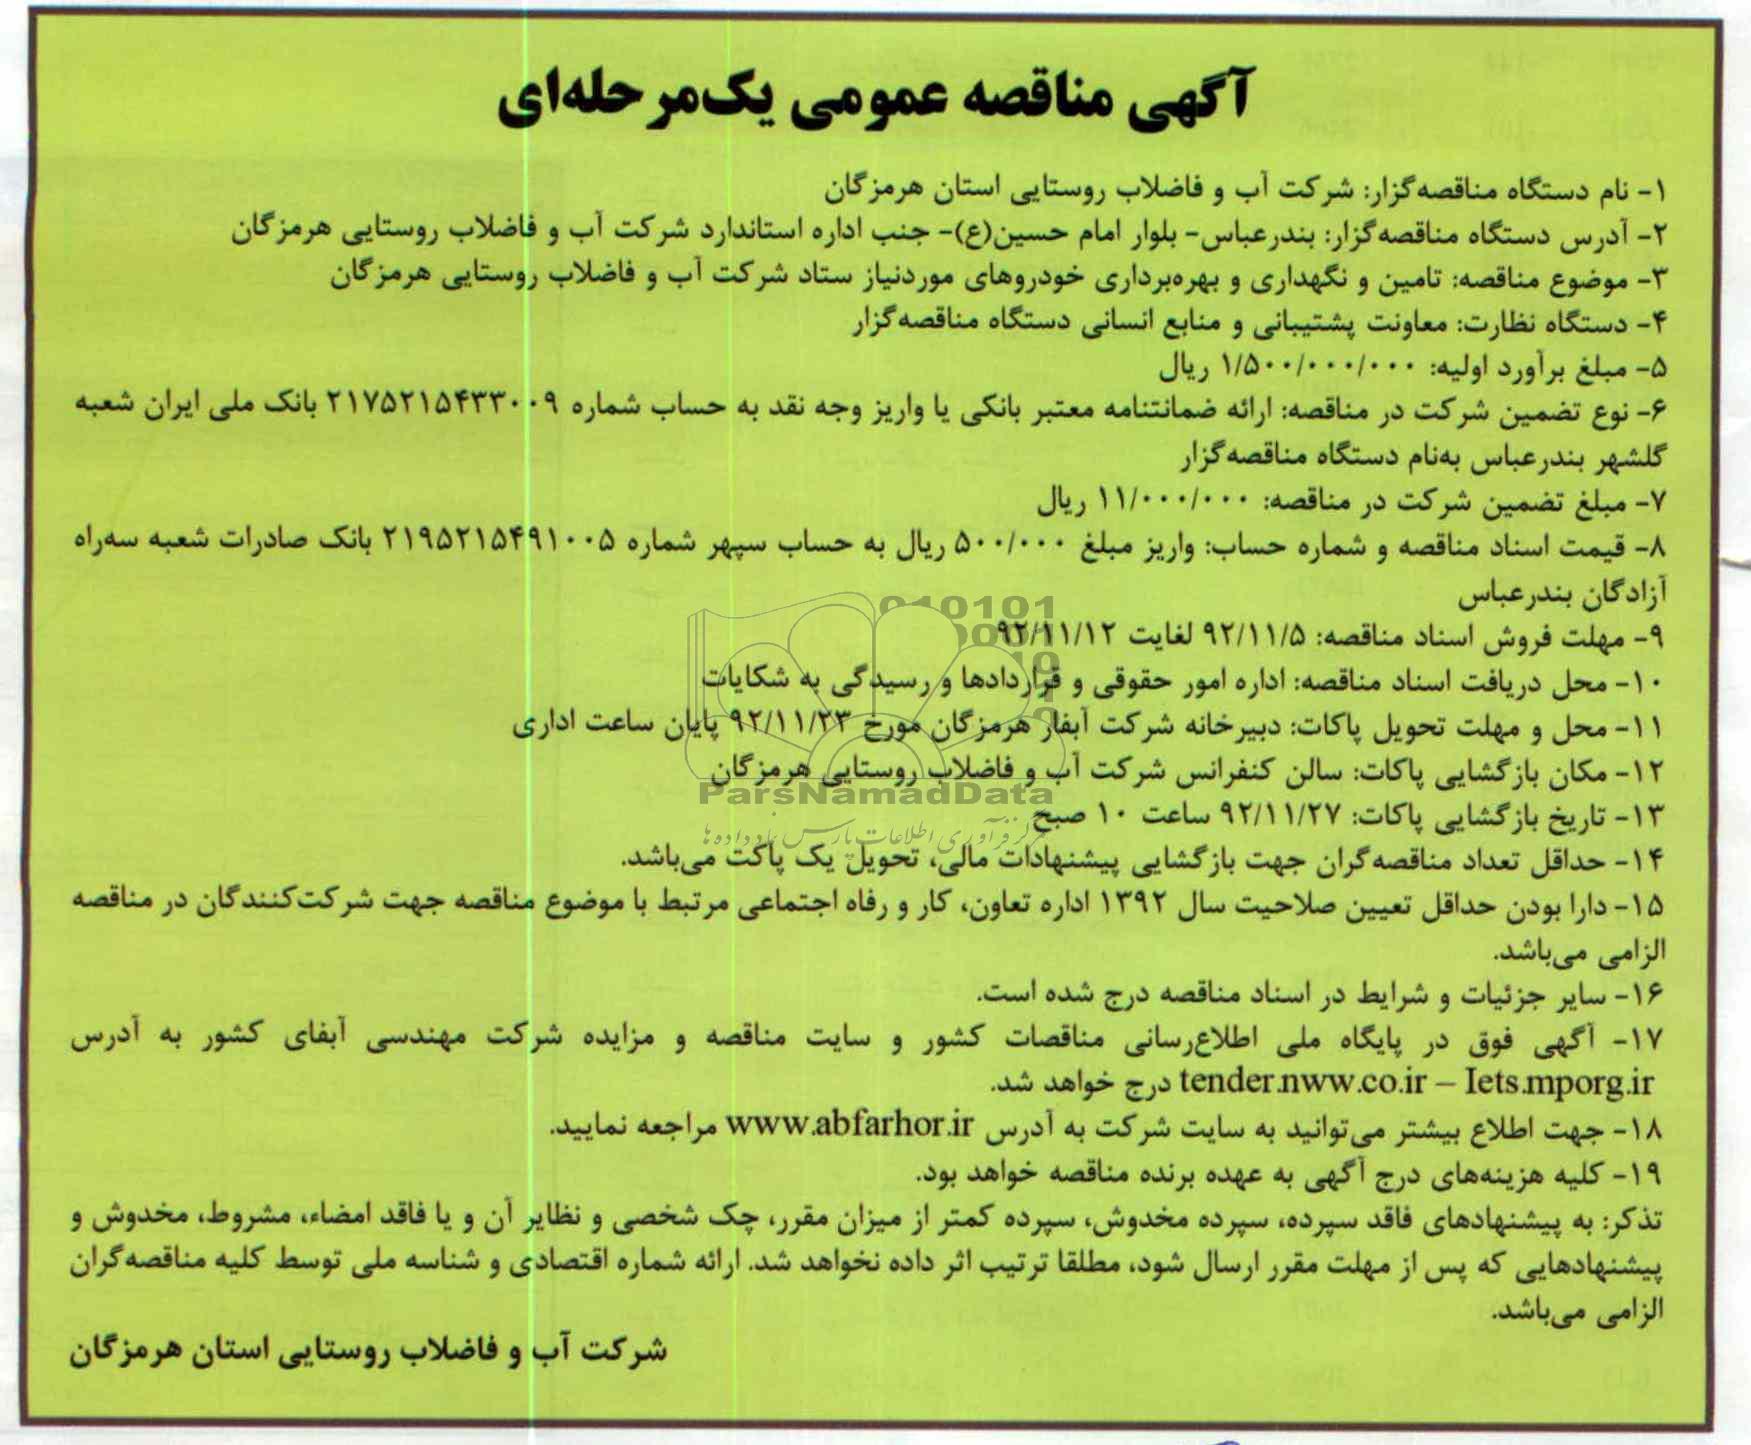 آگهی مناقصه عمومی یک‌مرحله‌ای
۱- نام دستگاه مناقصه‌گزار: شرکت آب و فاضلاب روستایی استان هرمزگان
۲- آدرس دستگاه مناقصه‌گزار: بندرعباس- بلوار امام حسین(ع)- جنب اداره استاندارد شرکت آب و فاضلاب روستایی هرمزگان
۳- موضوع مناقصه: تامین و نگهداری و بهره‌برداری خودروهای موردنیاز ستاد شرکت آب و فاضلاب روستایی هرمزگان
۴- دستگاه نظارت: معاونت پشتیبانی و منابع انسانی دستگاه مناقصه‌گزار
۵- مبلغ برآورد اولیه: ۱/۵۰۰/۰۰۰/۰۰۰ ریال
۶- نوع تضمین شرکت در مناقصه: ارائه ضمانتنامه معتبر بانکی یا واریز وجه نقد به حساب شماره ۲۱۷۵۲۱۵۴۳۳۰۰۹ بانک ملی ایران شعبه
گلشهر بندرعباس به‌نام دستگاه مناقصه‌گزار
۷- مبلغ تضمین شرکت در مناقصه: ۱۱/۰۰۰/۰۰۰ ریال
۸- قیمت اسناد مناقصه و شماره حساب: واریز مبلغ ۵۰۰/۰۰۰ ریال به حساب سپهر شماره ۲۱۹۵۲۱۵۴۹۱۰۰۵ بانک صادرات شعبه سه‌راه
آزادگان بندرعباس
۹- مهلت فروش اسناد مناقصه: ۹۲/۱۱/۵ لغایت ۹۲/۱۱/۱۲
۱۰- محل دریافت اسناد مناقصه: اداره امور حقوقی و قراردادها و رسیدگی به شکایات
۱۱- محل و مهلت تحویل پاکات: دبیرخانه شرکت آبفار هرمزگان مورخ ۹۲/۱۱/۲۳ پایان ساعت اداری
۱۲- مکان بازگشایی پاکات: سالن کنفرانس شرکت آب و فاضلاب روستایی هرمزگان
ParsNamadData
۱۳- تاریخ بازگشایی پاکات: ۹۲/۱۱/۲۷ ساعت ۱۰ صبح
مرکز فرآوری اطلاعات پارس نماد داده‌ها
۱۴- حداقل تعداد مناقصه‌گران جهت بازگشایی پیشنهادات مالی، تحویل یک پاکت می‌باشد.
۱۵- دارا بودن حداقل تعیین صلاحیت سال ۱۳۹۲ اداره تعاون، کار و رفاه اجتماعی مرتبط با موضوع مناقصه جهت شرکت‌کنندگان در مناقصه
الزامی می‌باشد.
۱۶- سایر جزئیات و شرایط در اسناد مناقصه درج شده است.
۱۷- آگهی فوق در پایگاه ملی اطلاع‌رسانی مناقصات کشور و سایت مناقصه و مزایده شرکت مهندسی آبفای کشور به آدرس
tender.nww.co.ir – Iets.mporg.ir درج خواهد شد.
۱۸- جهت اطلاع بیشتر می‌توانید به سایت شرکت به آدرس www.abfarhor.ir مراجعه نمایید.
۱۹- کلیه هزینه‌های درج آگهی به عهده برنده مناقصه خواهد بود.
تذکر: به پیشنهادهای فاقد سپرده، سپرده مخدوش، سپرده کمتر از میزان مقرر، چک شخصی و نظایر آن و یا فاقد امضاء، مشروط، مخدوش و
پیشنهادهایی که پس از مهلت مقرر ارسال شود، مطلقا ترتیب اثر داده نخواهد شد. ارائه شماره اقتصادی و شناسه ملی توسط کلیه مناقصه‌گران
الزامی می‌باشد.
شرکت آب و فاضلاب روستایی استان هرمزگان